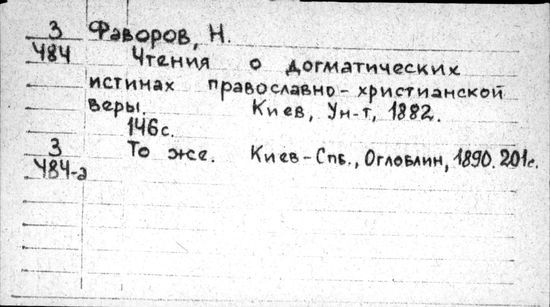 3 Фаворов, Н.
484 Чтения о догматических
истинах православно-христианской
веры. Киев, Ун-т, 1882.
146с.
3 То же. Киев-Спб., Оглоблин, 1890. 201с.
484-а